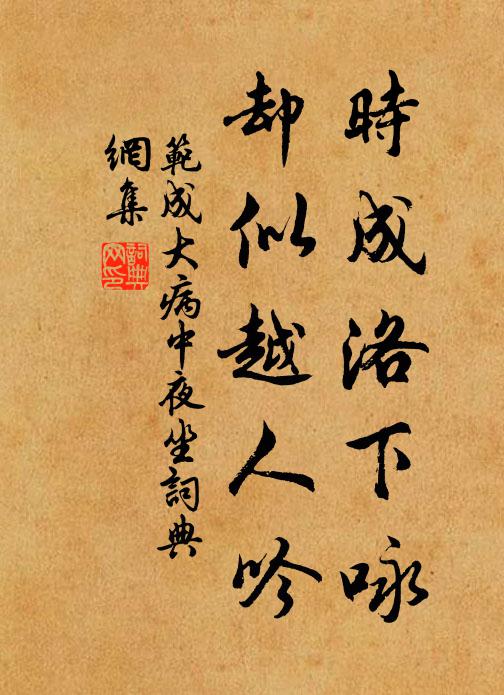 時成洛下咏
却似越人吟
範成大病中夜坐詞典
網集
詞典網印